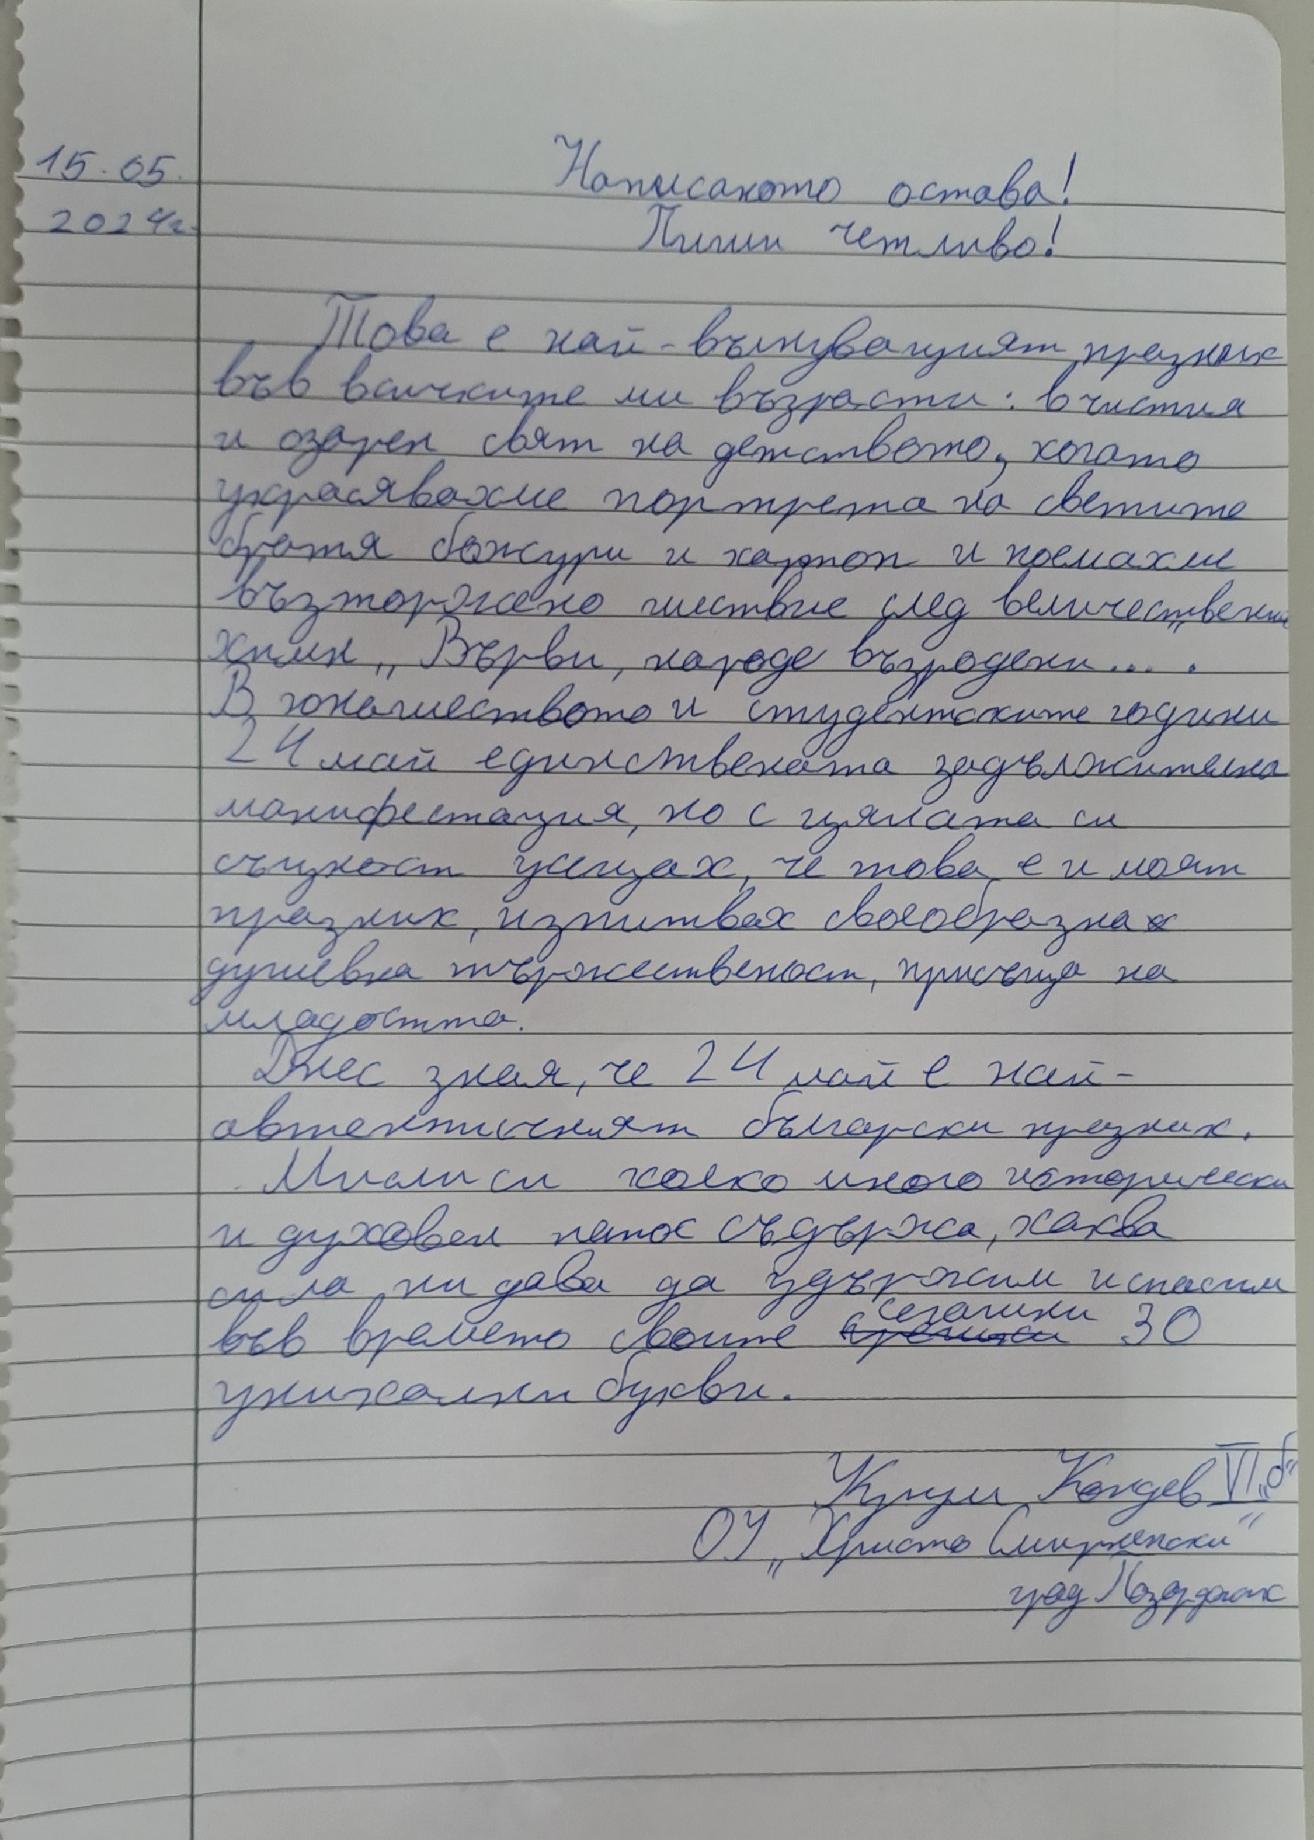 15.05.
2024г.
Написаното остава!
Пиши четливо!
Това е най-вълнуващият празник
във всичките ми възрасти: в чистия
и озарен свят на детството, когато
украсявахме портрета на светите
братя божури и карпоп и поемахме
възторжено шествие след величествения
химн „Върви, народе възродени....
В юношеството и студентските години
24 май единствената задължителна
манифестация, но с цялата си
същност усещах, че това е и моят
празник, изпитвах своеобразна
душевна тържественост, присъща на
младостта.
Днес зная, че 24 май е най-
автентичният български празник.
Мисли си колко много исторически
и духовен патос съдържа, каква
сила ни дава да удържим и спасим
във времето своите сегашни 30
уникални букви.
Кондев VI „б"
ОУ „Христо Смирненски"
град Пазарджик